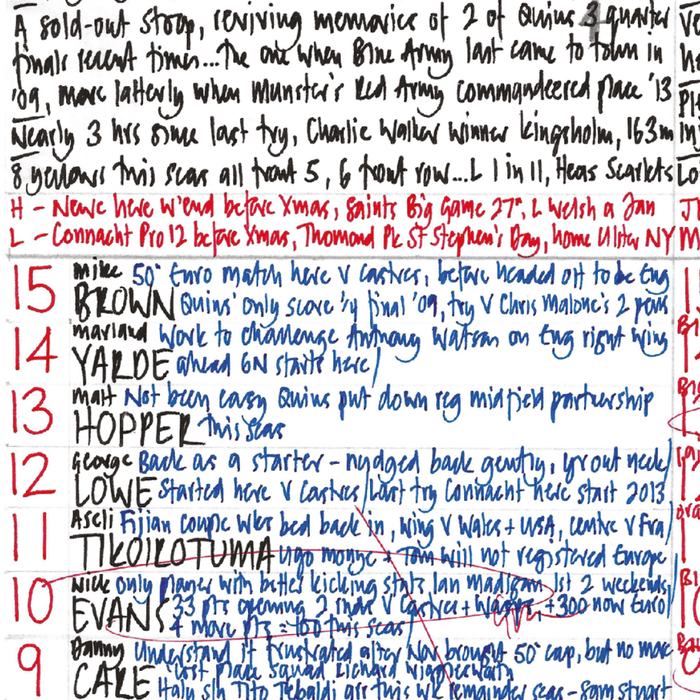 A sold-out Stoop, reviving memories of 2 of Quins 3 quarter
finals recent times...The one when Blue Army last came to town in
'09, more latterly when Munster's Red Army commandeered place '13
Nearly 3 hrs since last try, Charlie Walker winner Kingsholm, 163m
8 yellows this seas all front 5, 6 front row...L 1 in 11, Heas Scarlets
H - Newc here w'end before Xmas, Saints Big Game 27", L Welsh a Jan
L - Connacht Pro 12 before Xmas, Thomond Pk St Stephen's Day, home Ulster NY
15 Mike 50" Euro match here v Castres, before headed off to be Eng
BROWN Quins' only score 1/4 final '09, try v Chris Malone's 2 pens
14 Marland Work to challenge Anthony Watson on Eng right wing
YARDE ahead 6N starts here
13 Matt Not been easy Quins put down reg midfield partnership
HOPPER this seas
12 George Back as a starter - nudged back gently, 
LOWE Started here v Castres/Last try Connacht here start 2013
11 Aseli Fijian couple wks bed back in, wing v Wales + USA, centre v Fra
TIKOIROTUMA Ugo Monye + Tom Will not registered Europe
10 Nick only player with better kicking stats Ian Madigan 1st 2 weekends
EVANS 33 pts opening 2 rnds v Castres + Wasps, +300 now Euro
4 more pts = 100 this seas
9 Danny Understand it frustrated after Nov brought 50" cap, but no more
CARE last place squad Richard Wigglesworth
Italy s/h Tito Tebaldi arr this wk remainder seas - Sam Stuart